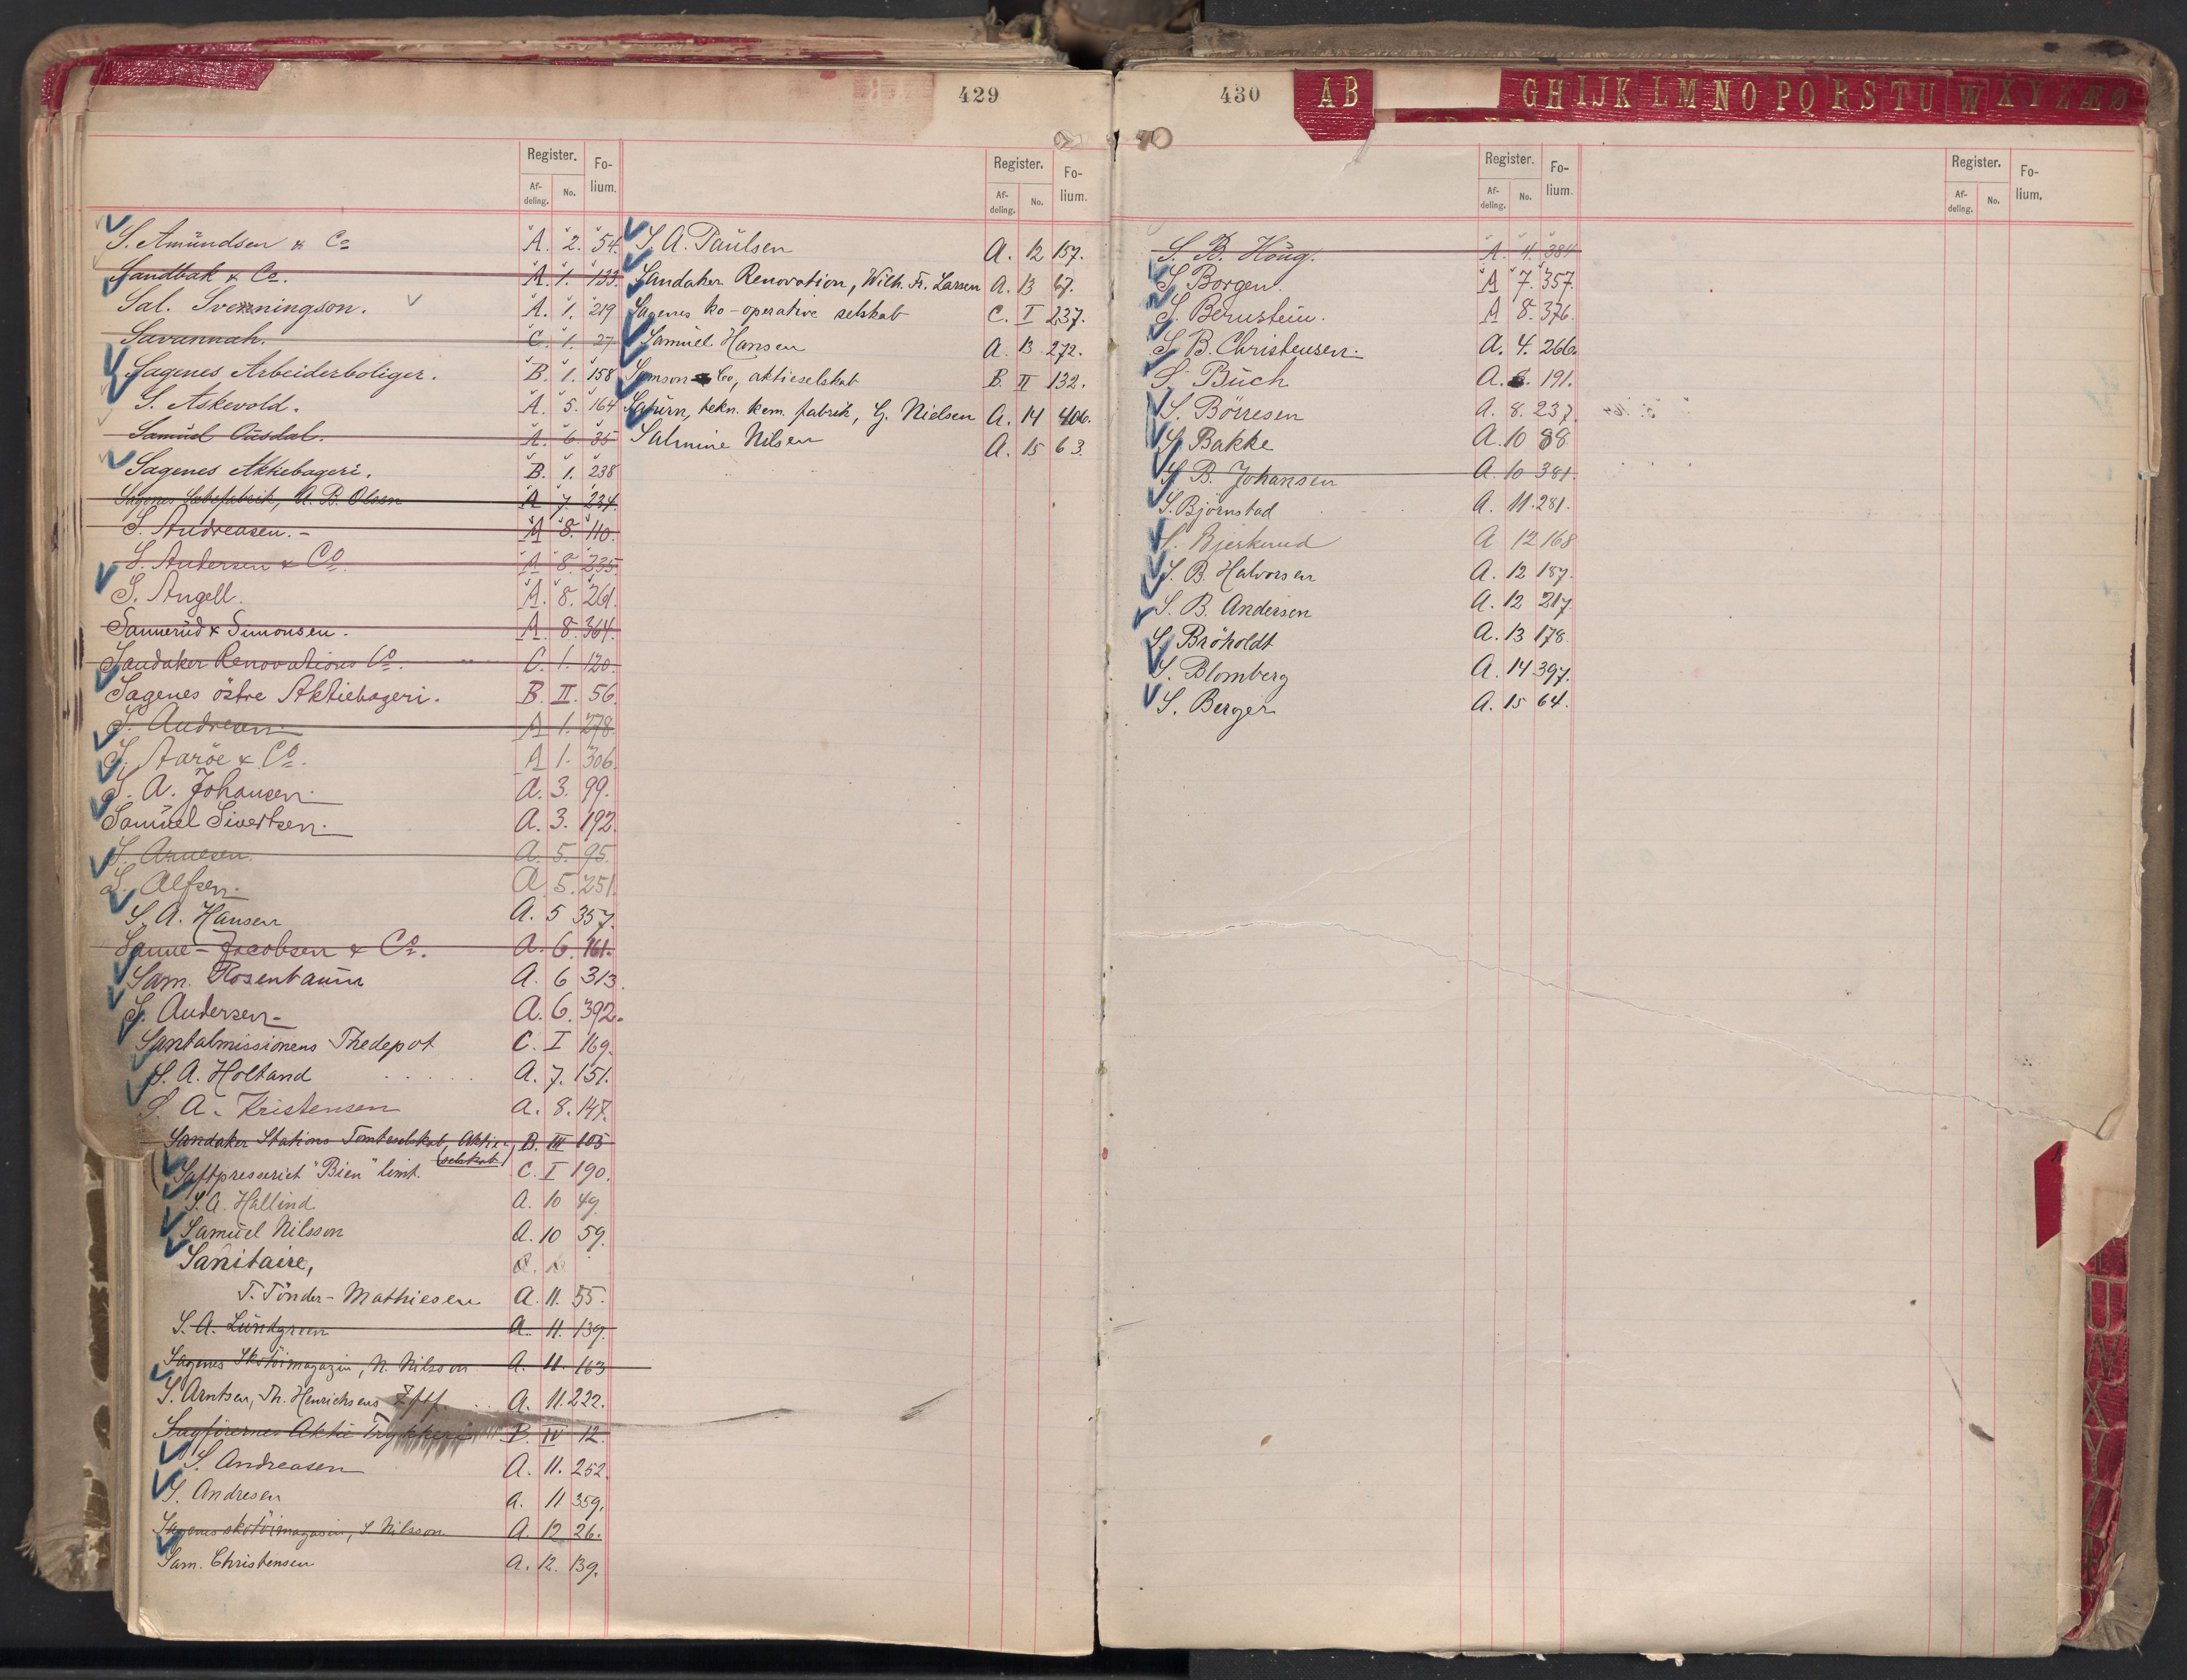 429
Register. Fo-lium.
Af-deling. No.
S. Amundsen & Co A. 2. 54.
Sandbak & Co. A. 1. 133.
Sal. Svenningson. A. 1. 219
Savannah. C. 1. 27
Sagenes Arbeiderboliger. B. 1. 158
S. Askevold. A. 5. 164
Samuel Ousdal. A. 6. 35
Sagenes Aktiebageri. B. 1. 238
Sagenes Sæbefabrik, A. B. Olsen A 7. 234
S. Andreasen. A 8. 110.
S. Andersen & Co. A 8. 235.
S. Angell. A. 8. 261.
Sannerud & Simonsen. A. 8. 364.
Sandaker Renovations Co. C. 1. 120.
Sagenes östre Aktiebageri. B. II. 56.
S. Andresen A 1. 278
S. Aaröe & Co. A 1. 306.
S. A. Johansen. A. 3. 99.
Samuel Sivertsen. A. 3. 192.
S. Arnesen. A. 5. 95.
S. Alfsen. A 5. 251.
S. A. Hansen A. 5 357.
Sanne-Jacobsen & Co. A. 6. 161.
Sam. Rosenbaum A. 6 313.
S. Andersen A. 6. 392.
Santalmissionens Thedepot C. I 169.
S. A. Holtand A. 7. 151.
S. A. Kristensen A. 8. 147.
Sandaker Stations Tomteselskab, Aktie-, B. III 105
(selskab)
Saftpresseriet "Bien" limt. C. I 190.
S. A. Hallind A. 10 49.
Samuel Nilsson A. 10 59.
Sanitaire,
T. Tönder-Mathiesen A. 11. 55.
S. A. Lundgreen A. 11. 139.
Sagenes Skotöimagazin, N. Nilsson A. 11. 163
S. Arntsen, Th. Henrichsens Eftf. A. 11. 222.
Sagförernes Aktie Trykkeri B. IV 12.
S. Andreasen A. 11. 252.
S. Andresen A. 11 359.
Sagenes skotöimagasin, S Nilsson A. 12 26.
Sam. Christensen A. 12. 139.
Register. Fo-lium.
Af-deling. No.
S. A. Paulsen A. 12 157.
Sandaker Renovation, Wilh. Fr. Larsen A. 13 67.
Sagenes ko-operative selskab C. I 237.
Samuel Hansen A. 13 272.
Samson & Co, aktieselskab B. II 132.
Saturn, tekn. kem. fabrik, G. Nielsen A. 14 406.
Salmine Nilsen A. 15 63.
430
AB GH IJK L M N O P Q R S T U W X Y Z Æ Ø
Register. Fo-lium.
Af-deling. No.
S. B. Höug. A. 4. 384
S. Borgen. A 7. 357.
S. Bernstein. A 8. 376.
S. B. Christensen. A. 4. 266.
S. Buch A. 8. 191.
S. Börresen A. 8. 237.
S. Bakke A. 10 88
S. B. Johansen A. 10 381.
S. Björnstad A. 11. 281.
S. Bjerkerud A 12 168
S. B. Halvorsen A. 12 187.
S. B. Andersen A. 12 217.
S. Bröholdt A. 13 178.
S. Blomberg A. 14 397.
S. Berger A. 15 64.
Register. Fo-lium.
Af-deling. No.
U W X Y Z Æ